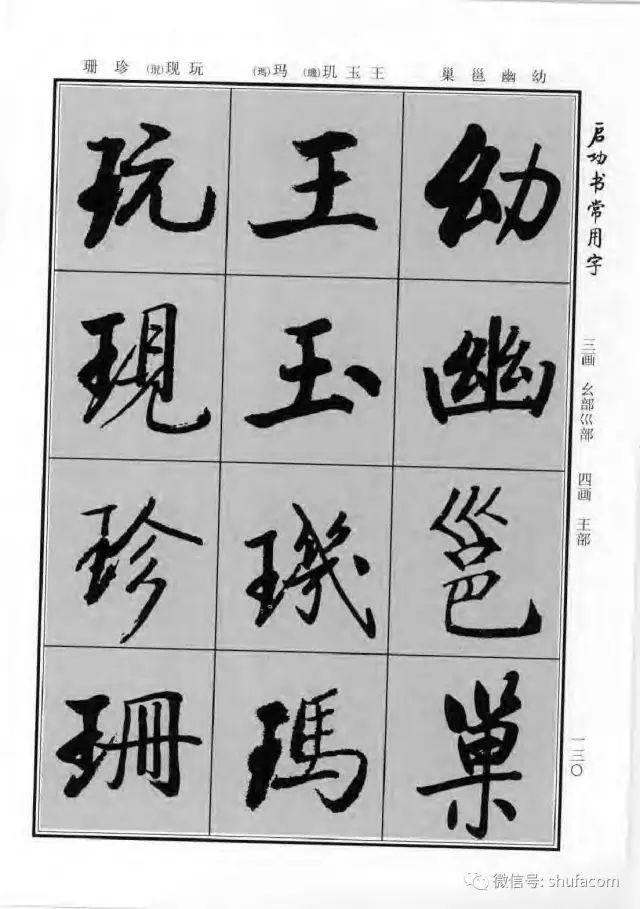 启功书常用字
三画 幺部巛部 四画 王部
一三〇
幼幽邕巢
王玉玑(璣)玛(瑪)
玩现(現)珍珊
幼
幽
邕
巢
王
玉
璣
瑪
玩
現
珍
珊
微信号: shufacom